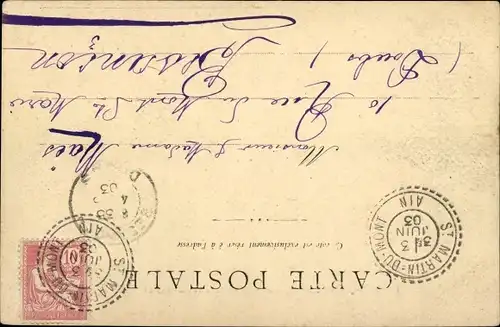 CARTE POSTALE
Ce côté est exclusivement réservé à l'adresse
ST MARTIN-DU-MONT
3
JUIN
03
AIN
ST MARTIN-DU-MONT
3
JUIN
03
AIN
10
Monsieur & Madame
10 Rue du Mont Ste Marie
Besançon
(Doubs)